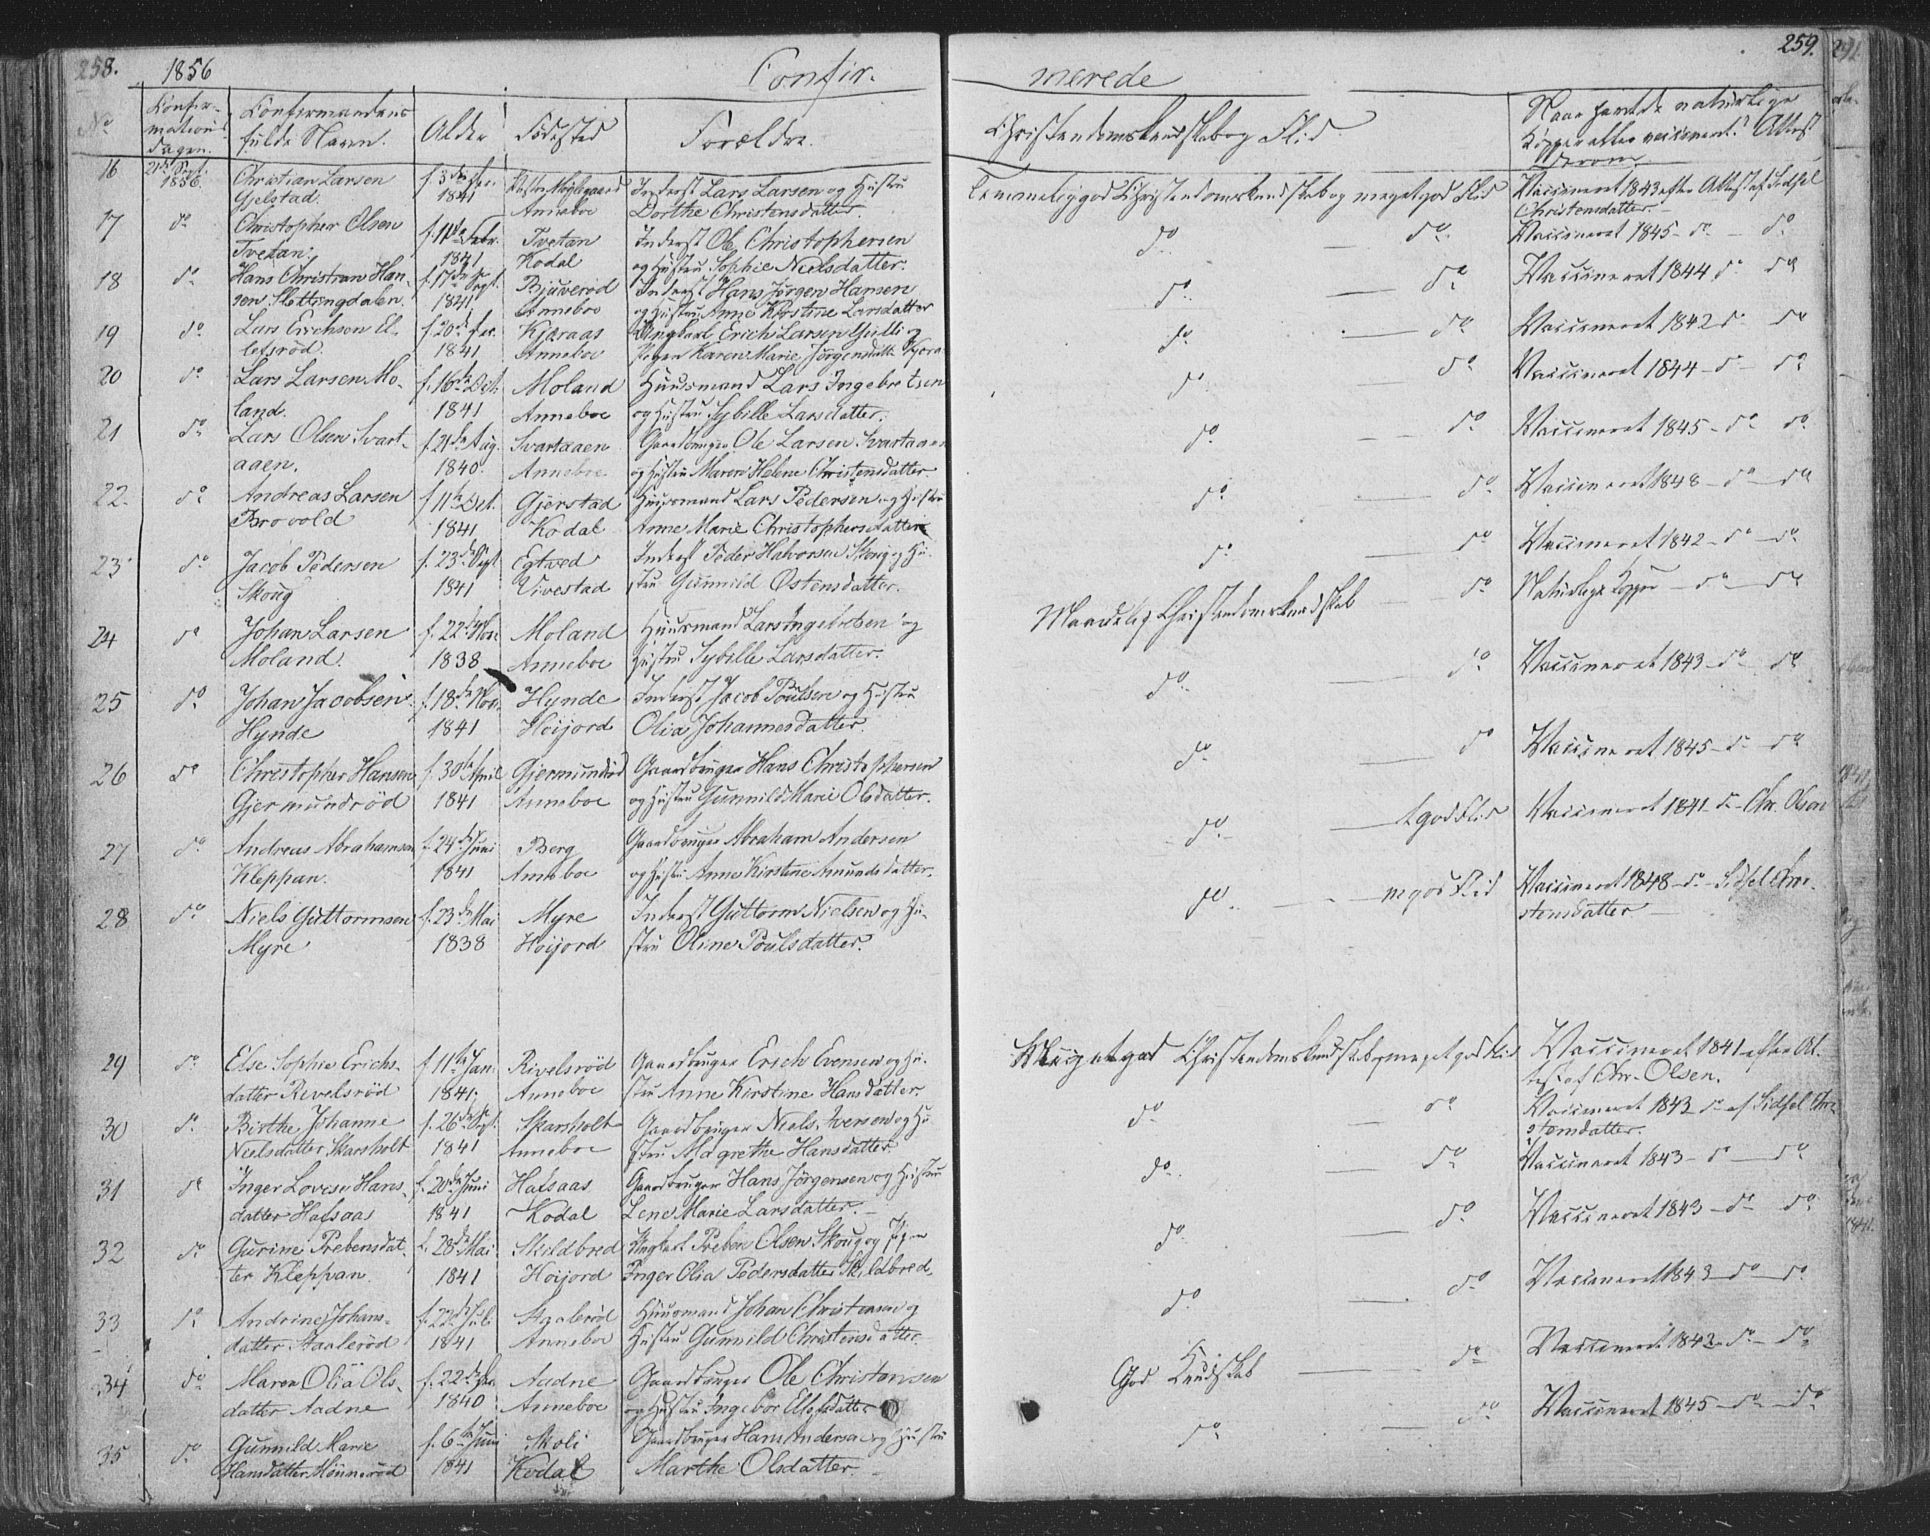 258. 1856 Confir-
No Confir-
mations
dagen. Confirmandens
fulde Navn. Alder Fødested Forældre.
16 21de Sept.
1856. Christian Larsen
Gjelstad. f. 3de
1841 Anneboe Inderst Lars Larsen og Hustru
Dorthe Christensdatter.
17 do Christopher Olsen
Tvetan. f. 11te Febr.
1841 Tvetan
Kodal Inderst Ole Christophersen
og Hustru Sophie Nielsdatter.
18 do Hans Christian Han-
sen Slettingdalen. f. 17de Sept.
1841 Bjuverød
Anneboe Inderst Hans Jørgen Hansen
og Hustru Anne Kirstine Larsdatter
19 do Lars Erichsen El-
lefsrød. f. 20de
1841 Kjæraas
Anneboe Ungkarl Erich Larsen og
Pigen Karen Marie Jørgensdatter
20 do Lars Larsen Mo-
land. f. 16de Oct.
1841 Moland
Anneboe Huusmand Lars Ingebretsen
og Hustru Sybille Larsdatter.
21 do Lars Olsen Svart-
aaen. f. 21de Aug.
1840. Svartaaen
Anneboe Gaardbruger Ole Larsen Svartaaen
og Hustru Maren Helene Christensdatter
22 do Andreas Larsen
Brovold f. 11te Oct.
1841 Gjerstad
Kodal Huusmand Lars Pedersen og Hustru
Anne Marie Christophersdatter
23 do Jacob Pedersen
Skoug f. 23de Sept
1841 Egtved
Vivestad Inderst Peder Halvorsen Skoug og Hu-
stru Gunnild Østensdatter.
24 do Johan Larsen
Moland. f. 22de Nov.
1838 Moland
Anneboe Huusmand Lars Ingebretsen og
Hustru Sybille Larsdatter.
25 do Johan Jacobsen
Hynde f. 18de Nov.
1841 Hynde
Høijord Inderst Jacob Poulsen og Hustru
Olia Johannesdatter.
26 do Christopher Hansen
Gjermundrød f. 30te April
1841 Gjermundrød
Anneboe Gaardbruger Hans Christophersen
og Hustru Gunnild Marie Olsdatter.
27 do Andreas Abrahamsen
Kleppan. f. 24de Juni
1841 Berg
Anneboe Gaardbruger Abraham Andersen
og Hustru Anne Kirstine Amundsdatter.
28 do Niels Guttormsen
Myre f. 23de Mai
1838 Myre
Høijord Inderst Guttorm Nielsen og Hu-
stru Oline Poulsdatter.
29 do Else Sophie Erichs-
datter Revelsrød f. 11te Jan.
1841. Rivelsrød
Anneboe Gaardbruger Erich Evensen og Hu-
stru Anne Kirstine Hansdatter.
30 do Birthe Johanne
Nielsdatter Skarsholt f. 26de Sept.
1841 Skarsholt
Anneboe Gaardbruger Niels Iversen og Hu
stru Magrethe Hansdatter.
31 do Inger Lovise Hans-
datter Hafsaas f. 20de Juni
1841 Hafsaas
Kodal Gaardbruger Hans Jørgensen og Hustru
Lene Marie Larsdatter.
32 do Gurine Prebensdat-
ter Kleppan. f. 28de Mai
1841 Skildbred
Høijord Ungkarl Preben Olsen Skoug og Pigen
Inger Olia Pedersdatter Skildbred.
33 do Andrine Johans-
datter Haalerød f. 22de Juli
1841 Haalerød
Anneboe Huusmand Johan Christensen og
Hustru Gunnild Christensdatter
34 do Maren Olia Ols-
datter Aadne f. 22de
1840 Aadne
Anneboe Gaardbruger Ole Christensen
og Hustru Ingebor datter
35 do Gunnild Marie
Hansdatter Hønnerød f. 6te Juni
1841 Skoli
Kodal Gaardbruger Hans Andersen og Hustru
Marthe Olsdatter.
merede 259.
Christendomskundskab og Flid. Naar havte naturlige
Kopper eller vaccineret? Attest
derom
Temmelig god Christendomskundskab og meget god Flid Vaccineret 1843 efter Attest af Sidsel
Christensdatter.
do do Vaccineret 1845 - do - do
do do Vaccineret 1844 do do
do do Vaccineret 1842 do do
do do Vaccineret 1844 - do - do
do do Vaccineret 1845 - do do
do do Vaccineret 1848 - do - do
do do Vaccineret 1842 - do - do
Maadelig Christendomskundskab do Naturlige Kopper - do - do
do do Vaccineret 1843 - do - do
do do Vaccineret 1845 - do - do
do god Flid Vaccineret 1841 - do - Chr. Olsen
do m god Flid Vaccineret 1848 - do - Sidsel Chri-
stensdatter
Meget god Christendomskundskab og meget god Flid Vaccineret 1841 efter At-
test af Chr. Olsen.
do do Vaccineret 1843 do af Sidsel Chri-
stensdatter.
do do Vaccineret 1843 - do - do
do do Vaccineret 1843 - do do
do do Vaccineret 1843 - do - do
God Kundskab do Vaccineret 1842 - do - do
do do Vaccineret 1845 - do - do